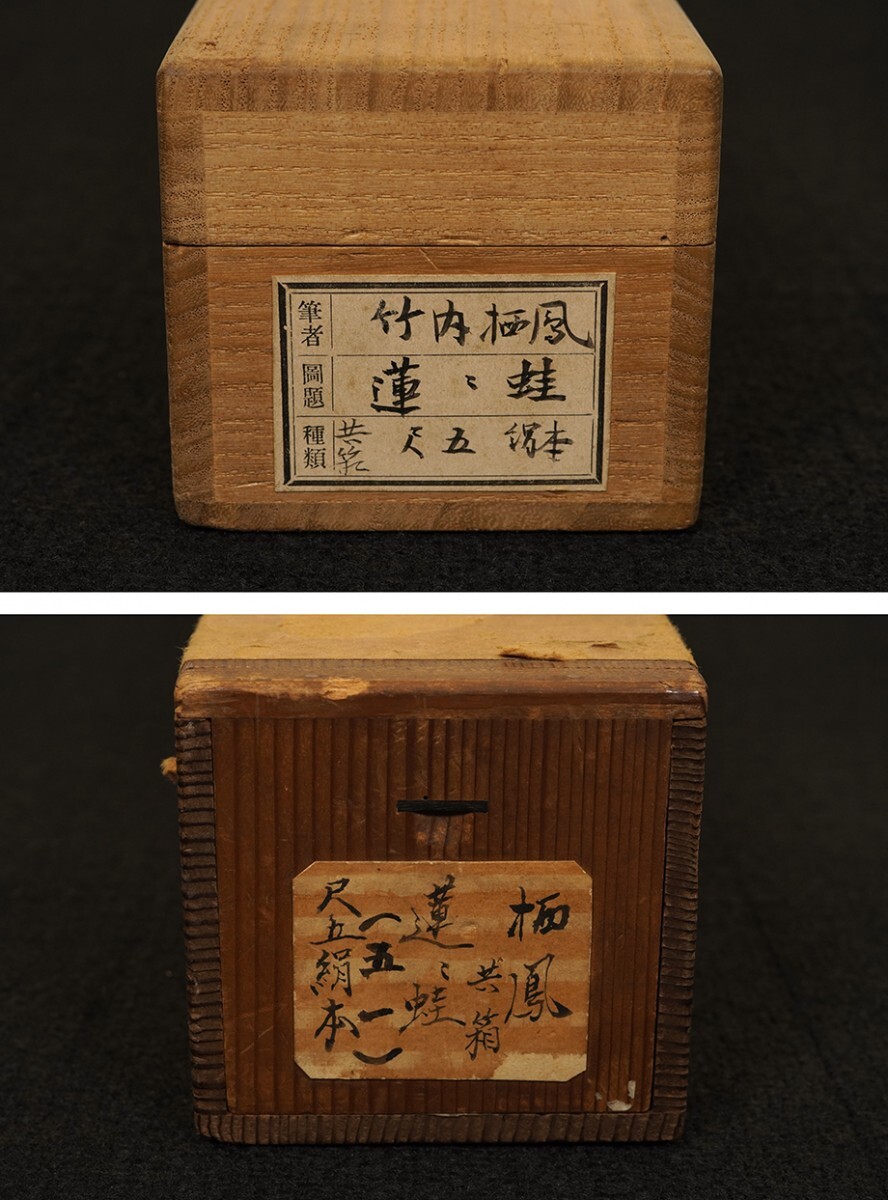 筆者 竹内栖鳳
圖題 蓮ニ蛙
種類 共箱 尺五 絹本
栖鳳
共箱
蓮ニ蛙
(五一)
尺五絹本